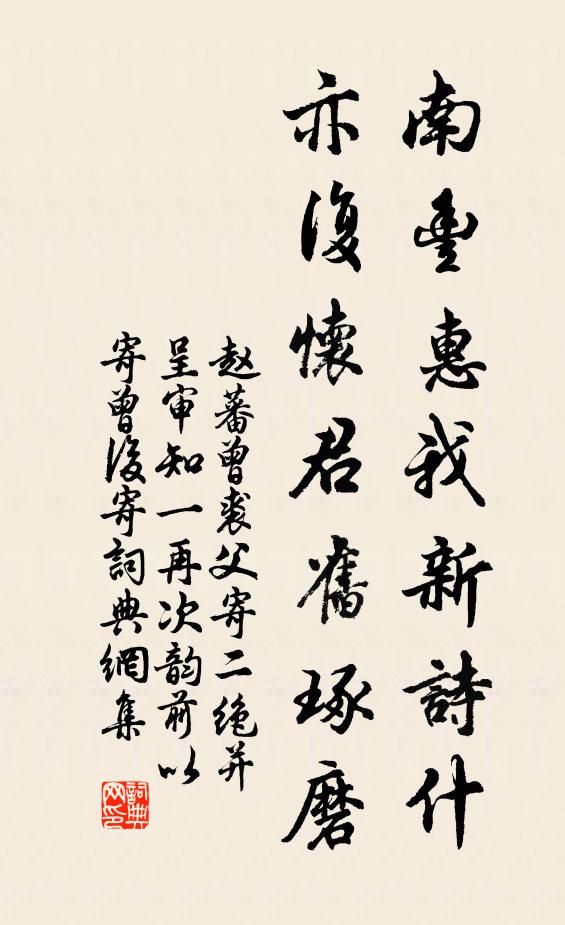 南豐惠我新詩什
亦復懷君舊琢磨
赵蕃曾裘父寄二绝并
呈审知一再次韵前以
寄曾後寄詞典網集
詞典网印